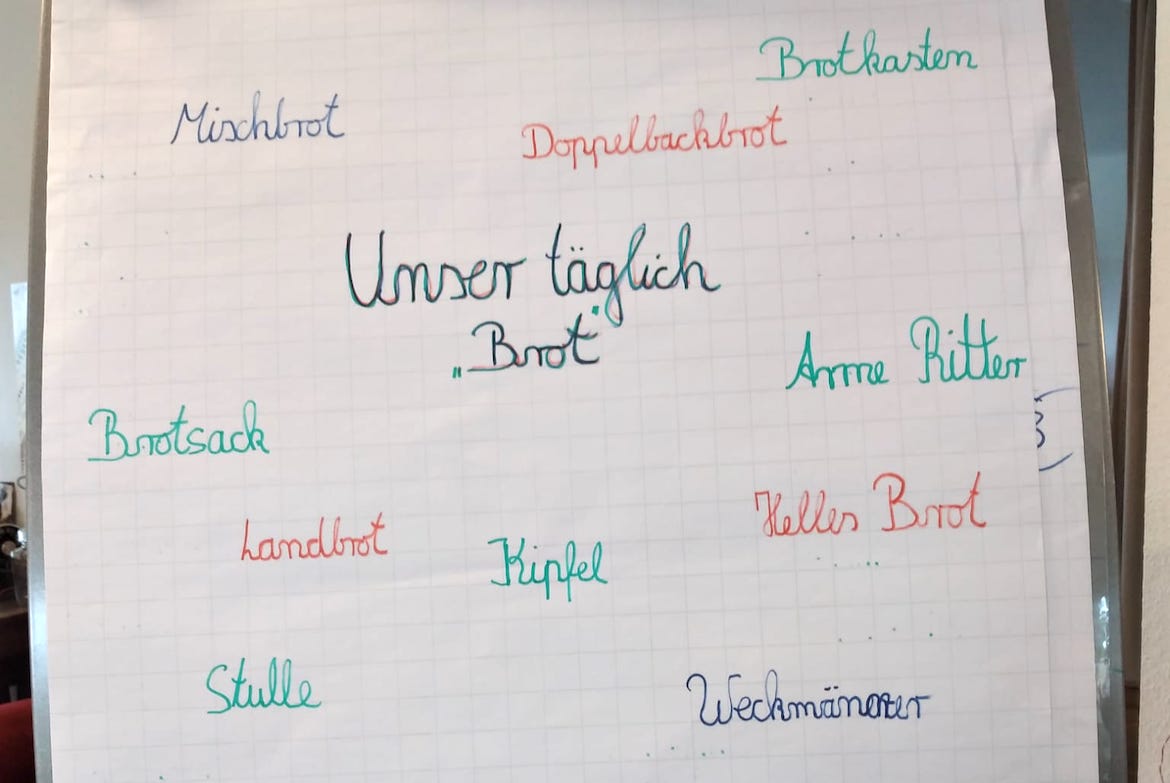 Brotkasten
Mischbrot
Doppelbackbrot
Unser täglich
„Brot“
Arme Ritter
Brotsack
Helles Brot
Landbrot
Kipfel
Stulle